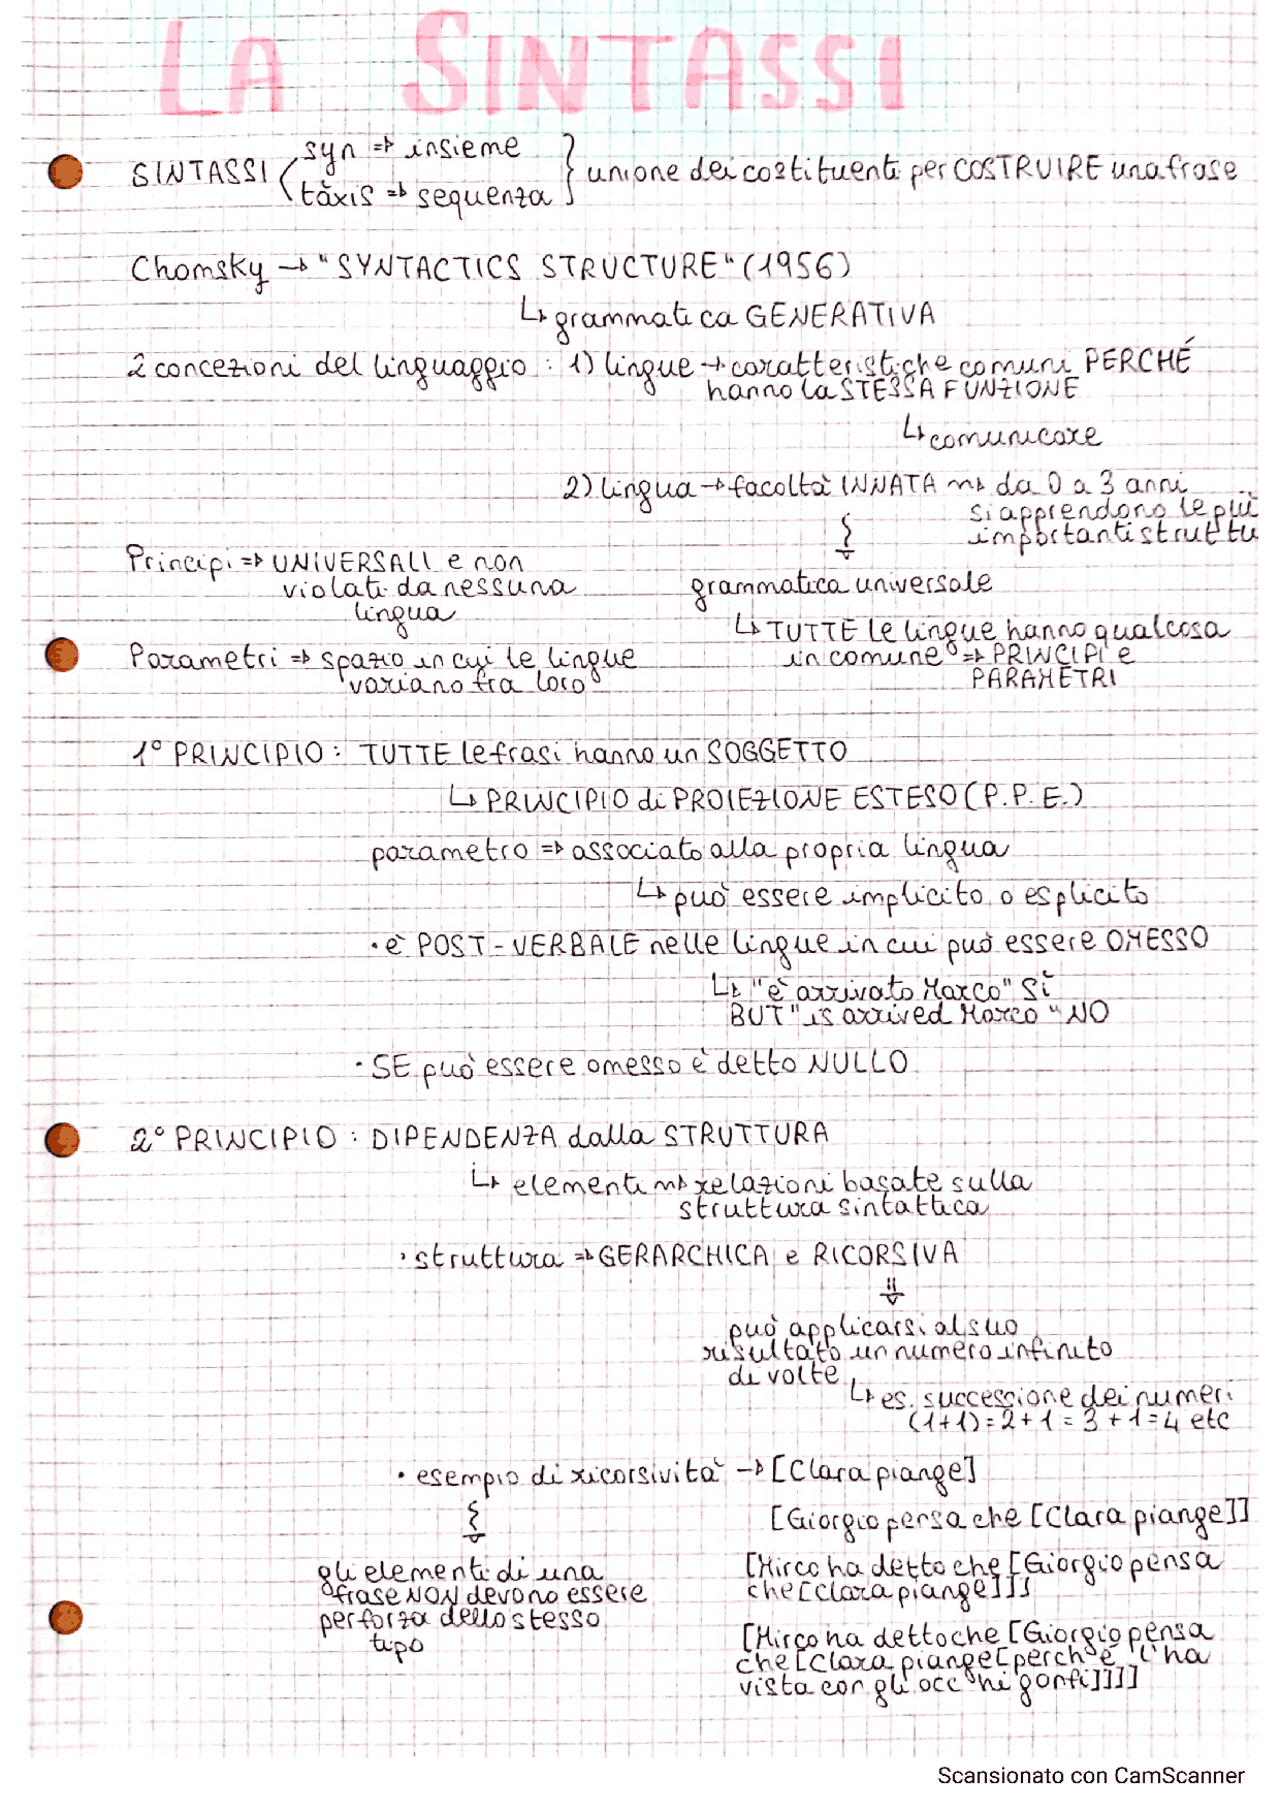 LA SINTASSI
SINTASSI syn => insieme
tàxis => sequenza
unione dei costituenti per COSTRUIRE una frase
Chomsky → "SYNTACTICS STRUCTURE" (1956)
↳ grammatica GENERATIVA
2 concezioni del linguaggio : 1) lingue → caratteristiche comuni PERCHÉ
hanno la STESSA FUNZIONE
↳ comunicare
2) lingua → facoltà INNATA ⇝ da 0 a 3 anni
si apprendono le più
importanti struttu
Principi => UNIVERSALI e non
violati da nessuna
lingua
grammatica universale
↳ TUTTE le lingue hanno qualcosa
in comune => PRINCIPI e
PARAMETRI
Parametri => spazio in cui le lingue
variano fra loro
1° PRINCIPIO : TUTTE le frasi hanno un SOGGETTO
↳ PRINCIPIO di PROIEZIONE ESTESO (P.P.E.)
parametro => associato alla propria lingua
↳ può essere implicito o esplicito
• è POST-VERBALE nelle lingue in cui può essere OMESSO
↳ "è arrivato Marco" Sì
BUT "is arrived Marco" NO
• SE può essere omesso è detto NULLO
2° PRINCIPIO : DIPENDENZA dalla STRUTTURA
↳ elementi ⇝ relazioni basate sulla
struttura sintattica
• struttura => GERARCHICA e RICORSIVA
può applicarsi al suo
risultato un numero infinito
di volte
↳ es. successione dei numeri
(1+1)=2+1=3+1=4 etc
• esempio di ricorsività → [Clara piange]
[Giorgio pensa che [Clara piange]]
gli elementi di una
frase NON devono essere
per forza dello stesso
tipo
[Mirco ha detto che [Giorgio pensa
che [Clara piange]]]
[Mirco ha detto che [Giorgio pensa
che [Clara piange [perché l'ha
vista con gli occhi gonfi]]]]
Scansionato con CamScanner